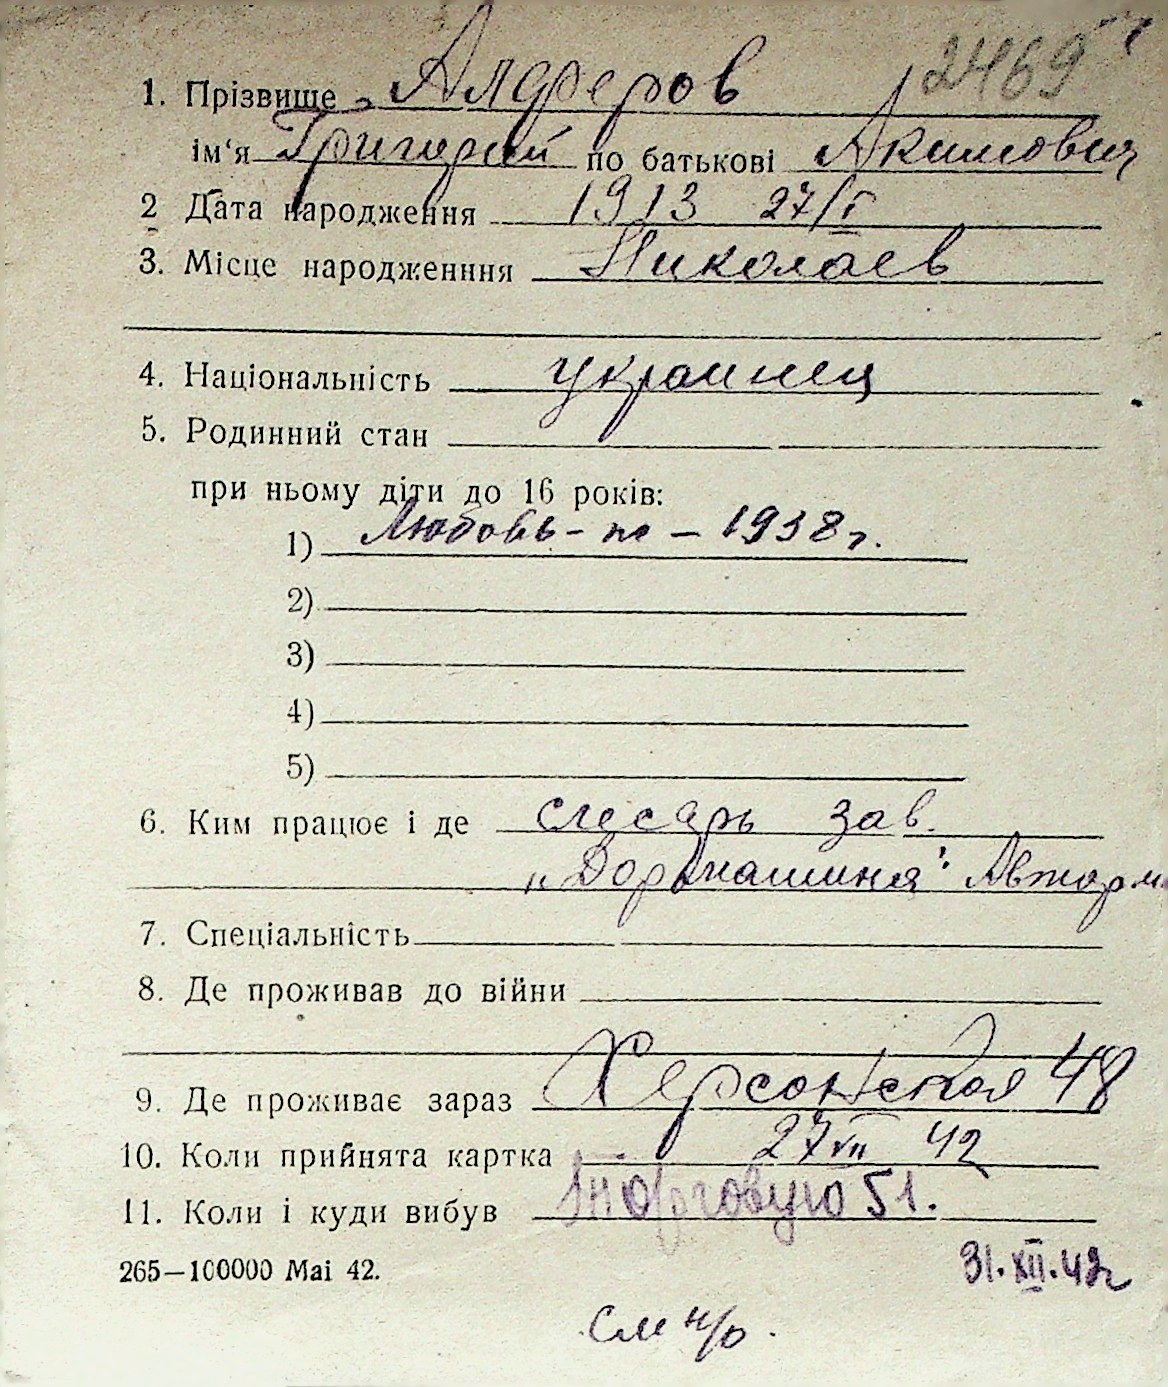 2469
1. Прізвище Алферов
ім‘я Григорий по батькові Акимович
2 Дата народження 1913 27/I
3. Місце народженння Николаев
4. Національність украинец
5. Родинний стан
при ньому діти до 16 років:
1) Любовь - 1938 г.
2)
3)
4)
5)
6. Ким працює і де слесарь зав.
„Дормашина"
7. Спеціальність
8. Де проживав до війни
9. Де проживає зараз Херсонская 48
10. Коли прийнята картка 27 VII 42
11. Коли і куди вибув Торговую 51.
265—100000 Mai 42.
31.XII.42г
См н/о.